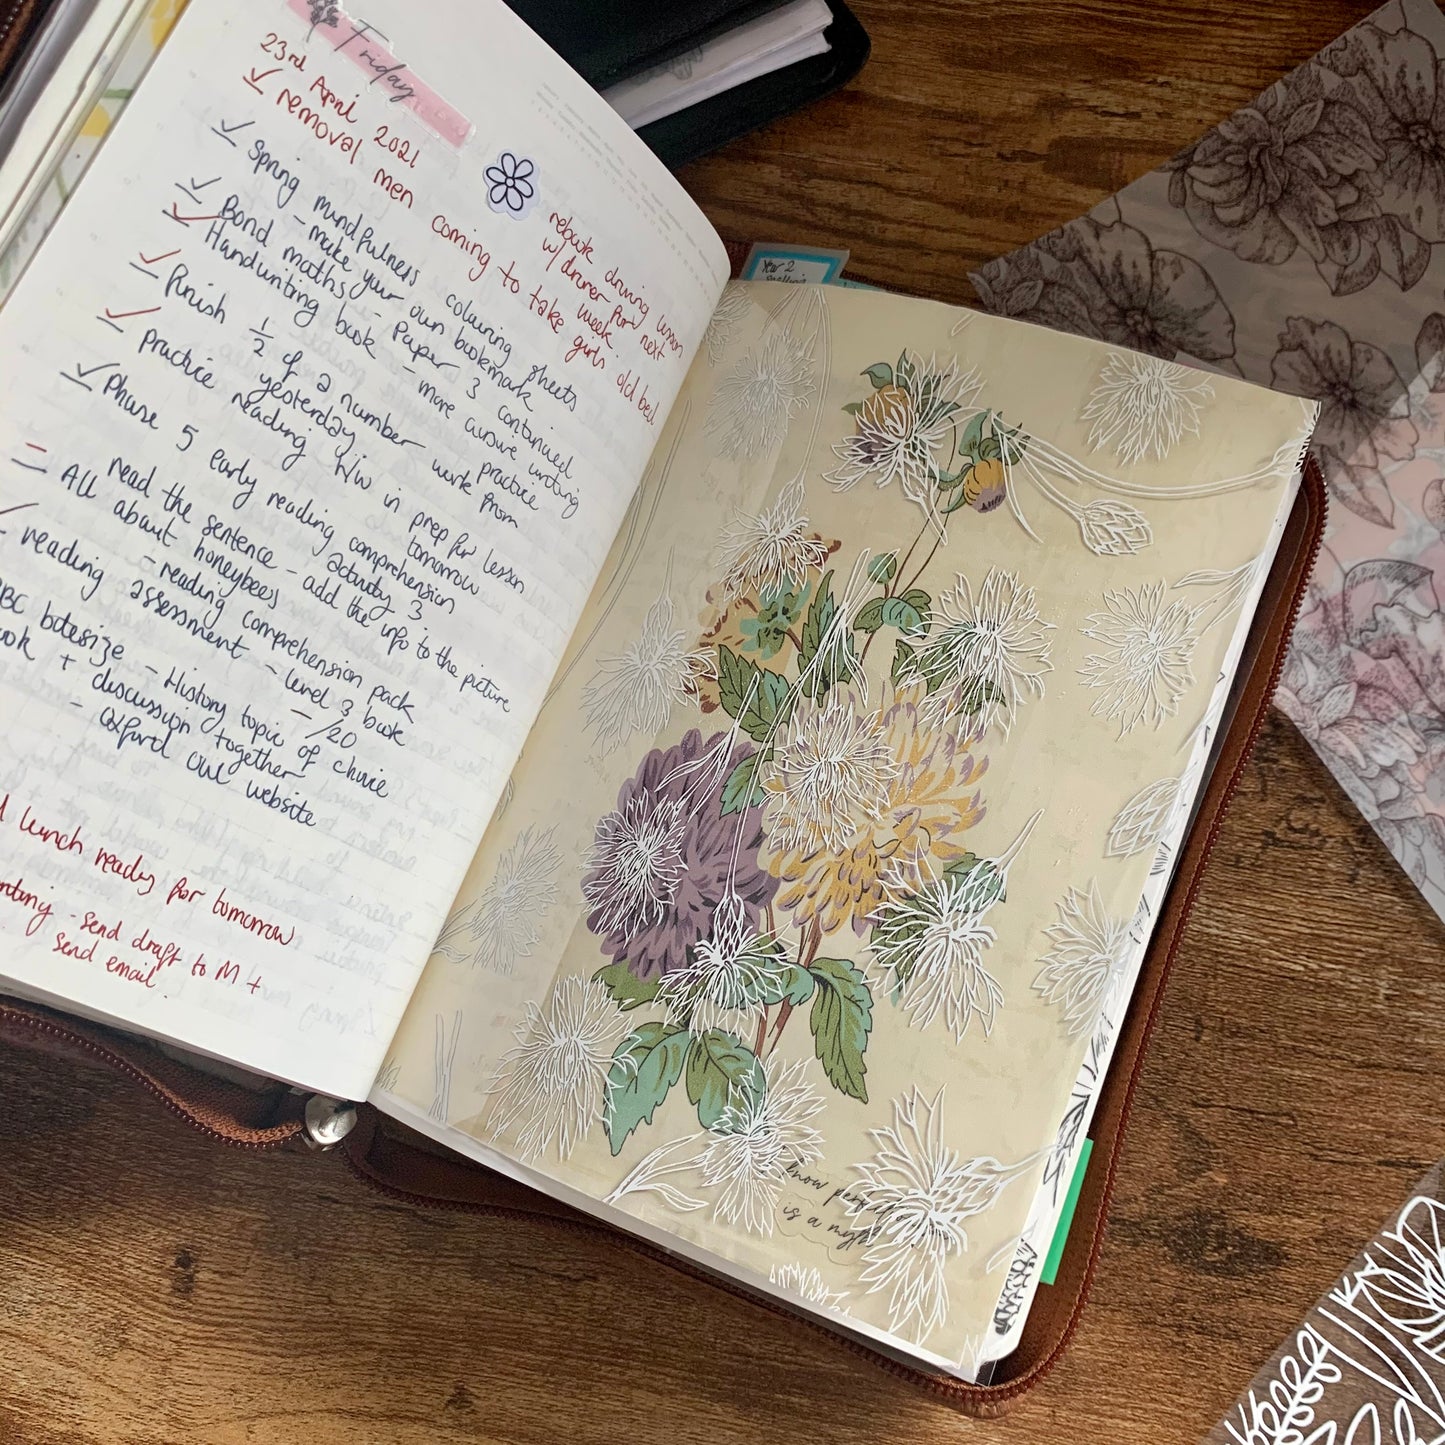 Friday
23rd April 2021
removal men coming to take girls old bed
rebook driving lesson
w/ driver for next
week.
Spring mindfulness colouring sheets
- make your own bookmark
Bond maths - Paper 3 continued
Handwriting book - more cursive writing
practice
Finish 1/2 of 2 number work from
yesterday
practice reading h/w in prep for lesson
tomorrow
Phase 5 early reading comprehension
activity 3
read the sentence - add the info to the picture
All about honeybees
- reading comprehension pack
reading assessment - level 3 book
- /20
BBC bitesize - History topic of choice
book + discussion together
- oxford owl website
lunch ready for tomorrow
- send draft to M +
send email.
Year 2
know perfect
is a myth